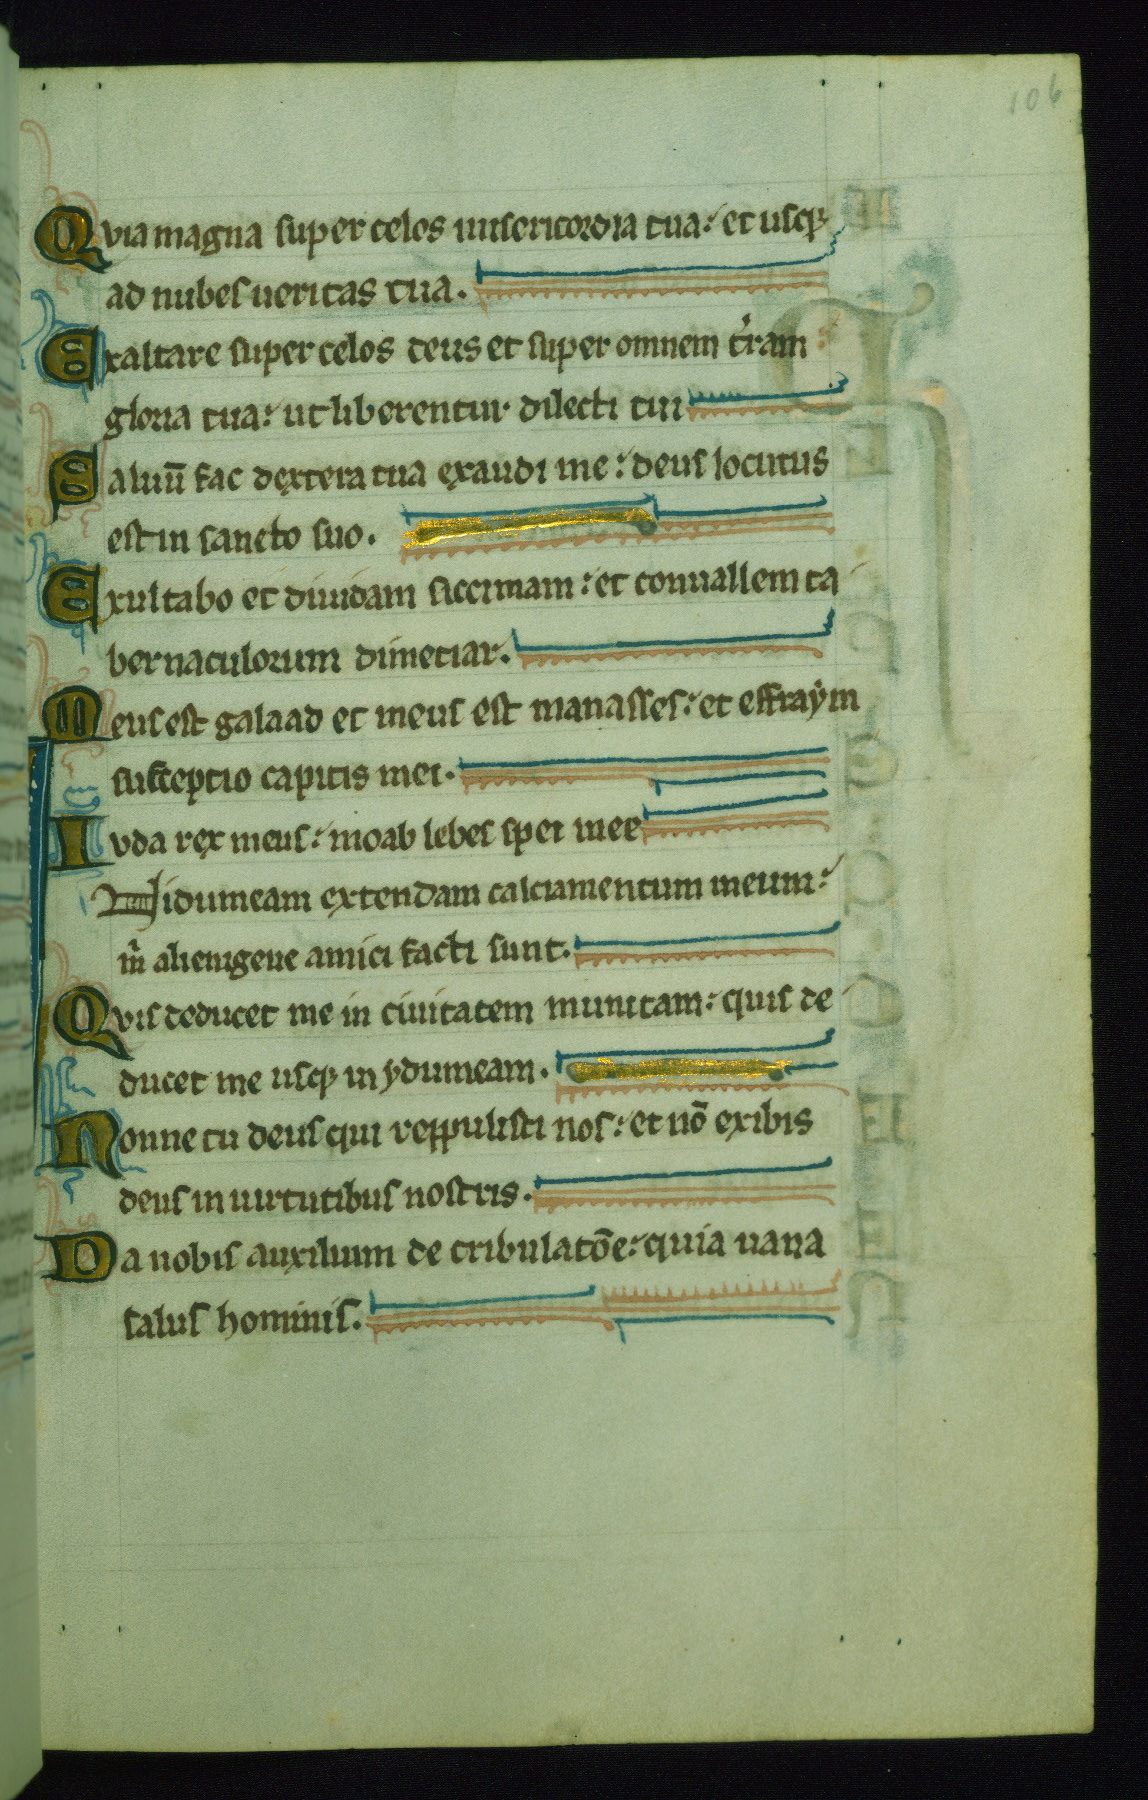 106
Quia magna super celos misericordia tua: et usq;
ad nubes ueritas tua.
Exaltare super celos deus et super omnem t̄ram
gloria tua: ut liberentur dilecti tui
Saluū fac dextera tua exaudi me: deus locutus
est in sancto suo.
Exultabo et diuidam siccimam: et conuallem ta
bernaculorum dimetiar.
Meus est galaad et meus est manasses: et effraym
susceptio capitis mei.
Iuda rex meus: moab lebes spei mee
In idumeam extendam calciamentum meum:
m̄ alienigene amici facti sunt.
Quis deducet me in ciuitatem munitam: quis de
ducet me usq; in ydumeam.
Nonne tu deus qui reppulisti nos: et nō exibis
deus in uirtutibus nostris.
Da nobis auxilium de tribulatōe: quia uana
salus hominis.